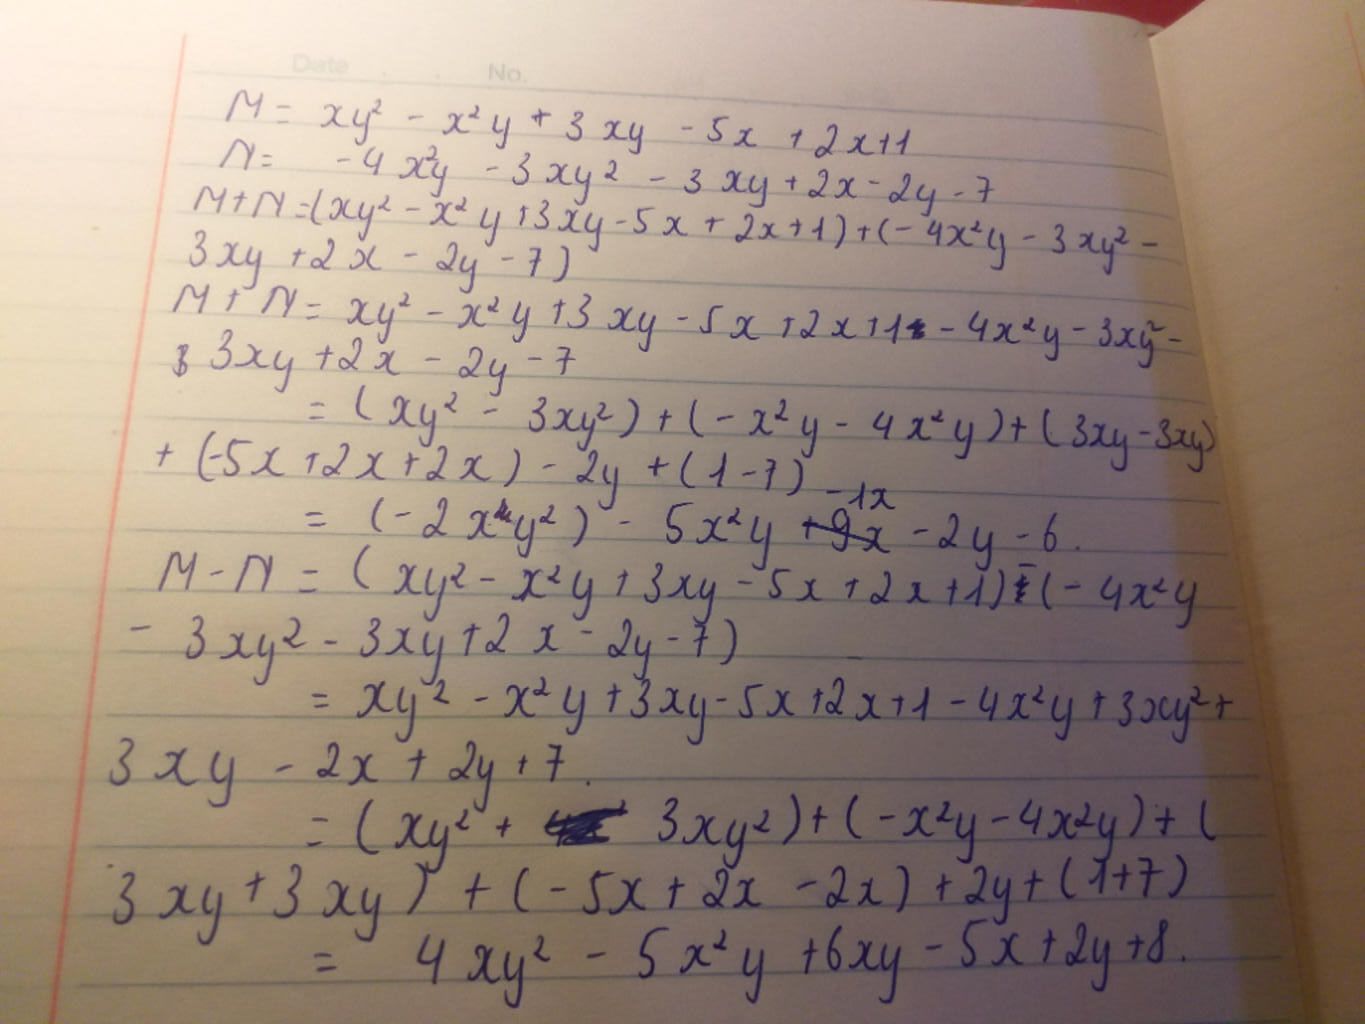 Date . . No.
M = xy² - x²y + 3xy - 5x + 2x+1
N = -4x²y - 3xy² - 3xy + 2x - 2y - 7
M+N=(xy² - x²y + 3xy - 5x + 2x+1) + (- 4x²y - 3xy² -
3xy + 2x - 2y - 7)
M + N = xy² - x²y + 3xy - 5x + 2x + 1 - 4x²y - 3xy² -
3xy + 2x - 2y - 7
= (xy² - 3xy²) + (- x²y - 4x²y) + (3xy - 3xy)
+ (-5x + 2x + 2x) - 2y + (1 - 7)
= (-2xy²) - 5x²y -1x - 2y - 6.
M - N = (xy² - x²y + 3xy - 5x + 2x + 1) - (- 4x²y
- 3xy² - 3xy + 2x - 2y - 7)
= xy² - x²y + 3xy - 5x + 2x + 1 - 4x²y + 3xy² +
3xy - 2x + 2y + 7.
= (xy² + 3xy²) + (-x²y - 4x²y) + (
3xy + 3xy) + (-5x + 2x - 2x) + 2y + (1+7)
= 4xy² - 5x²y + 6xy - 5x + 2y + 8.